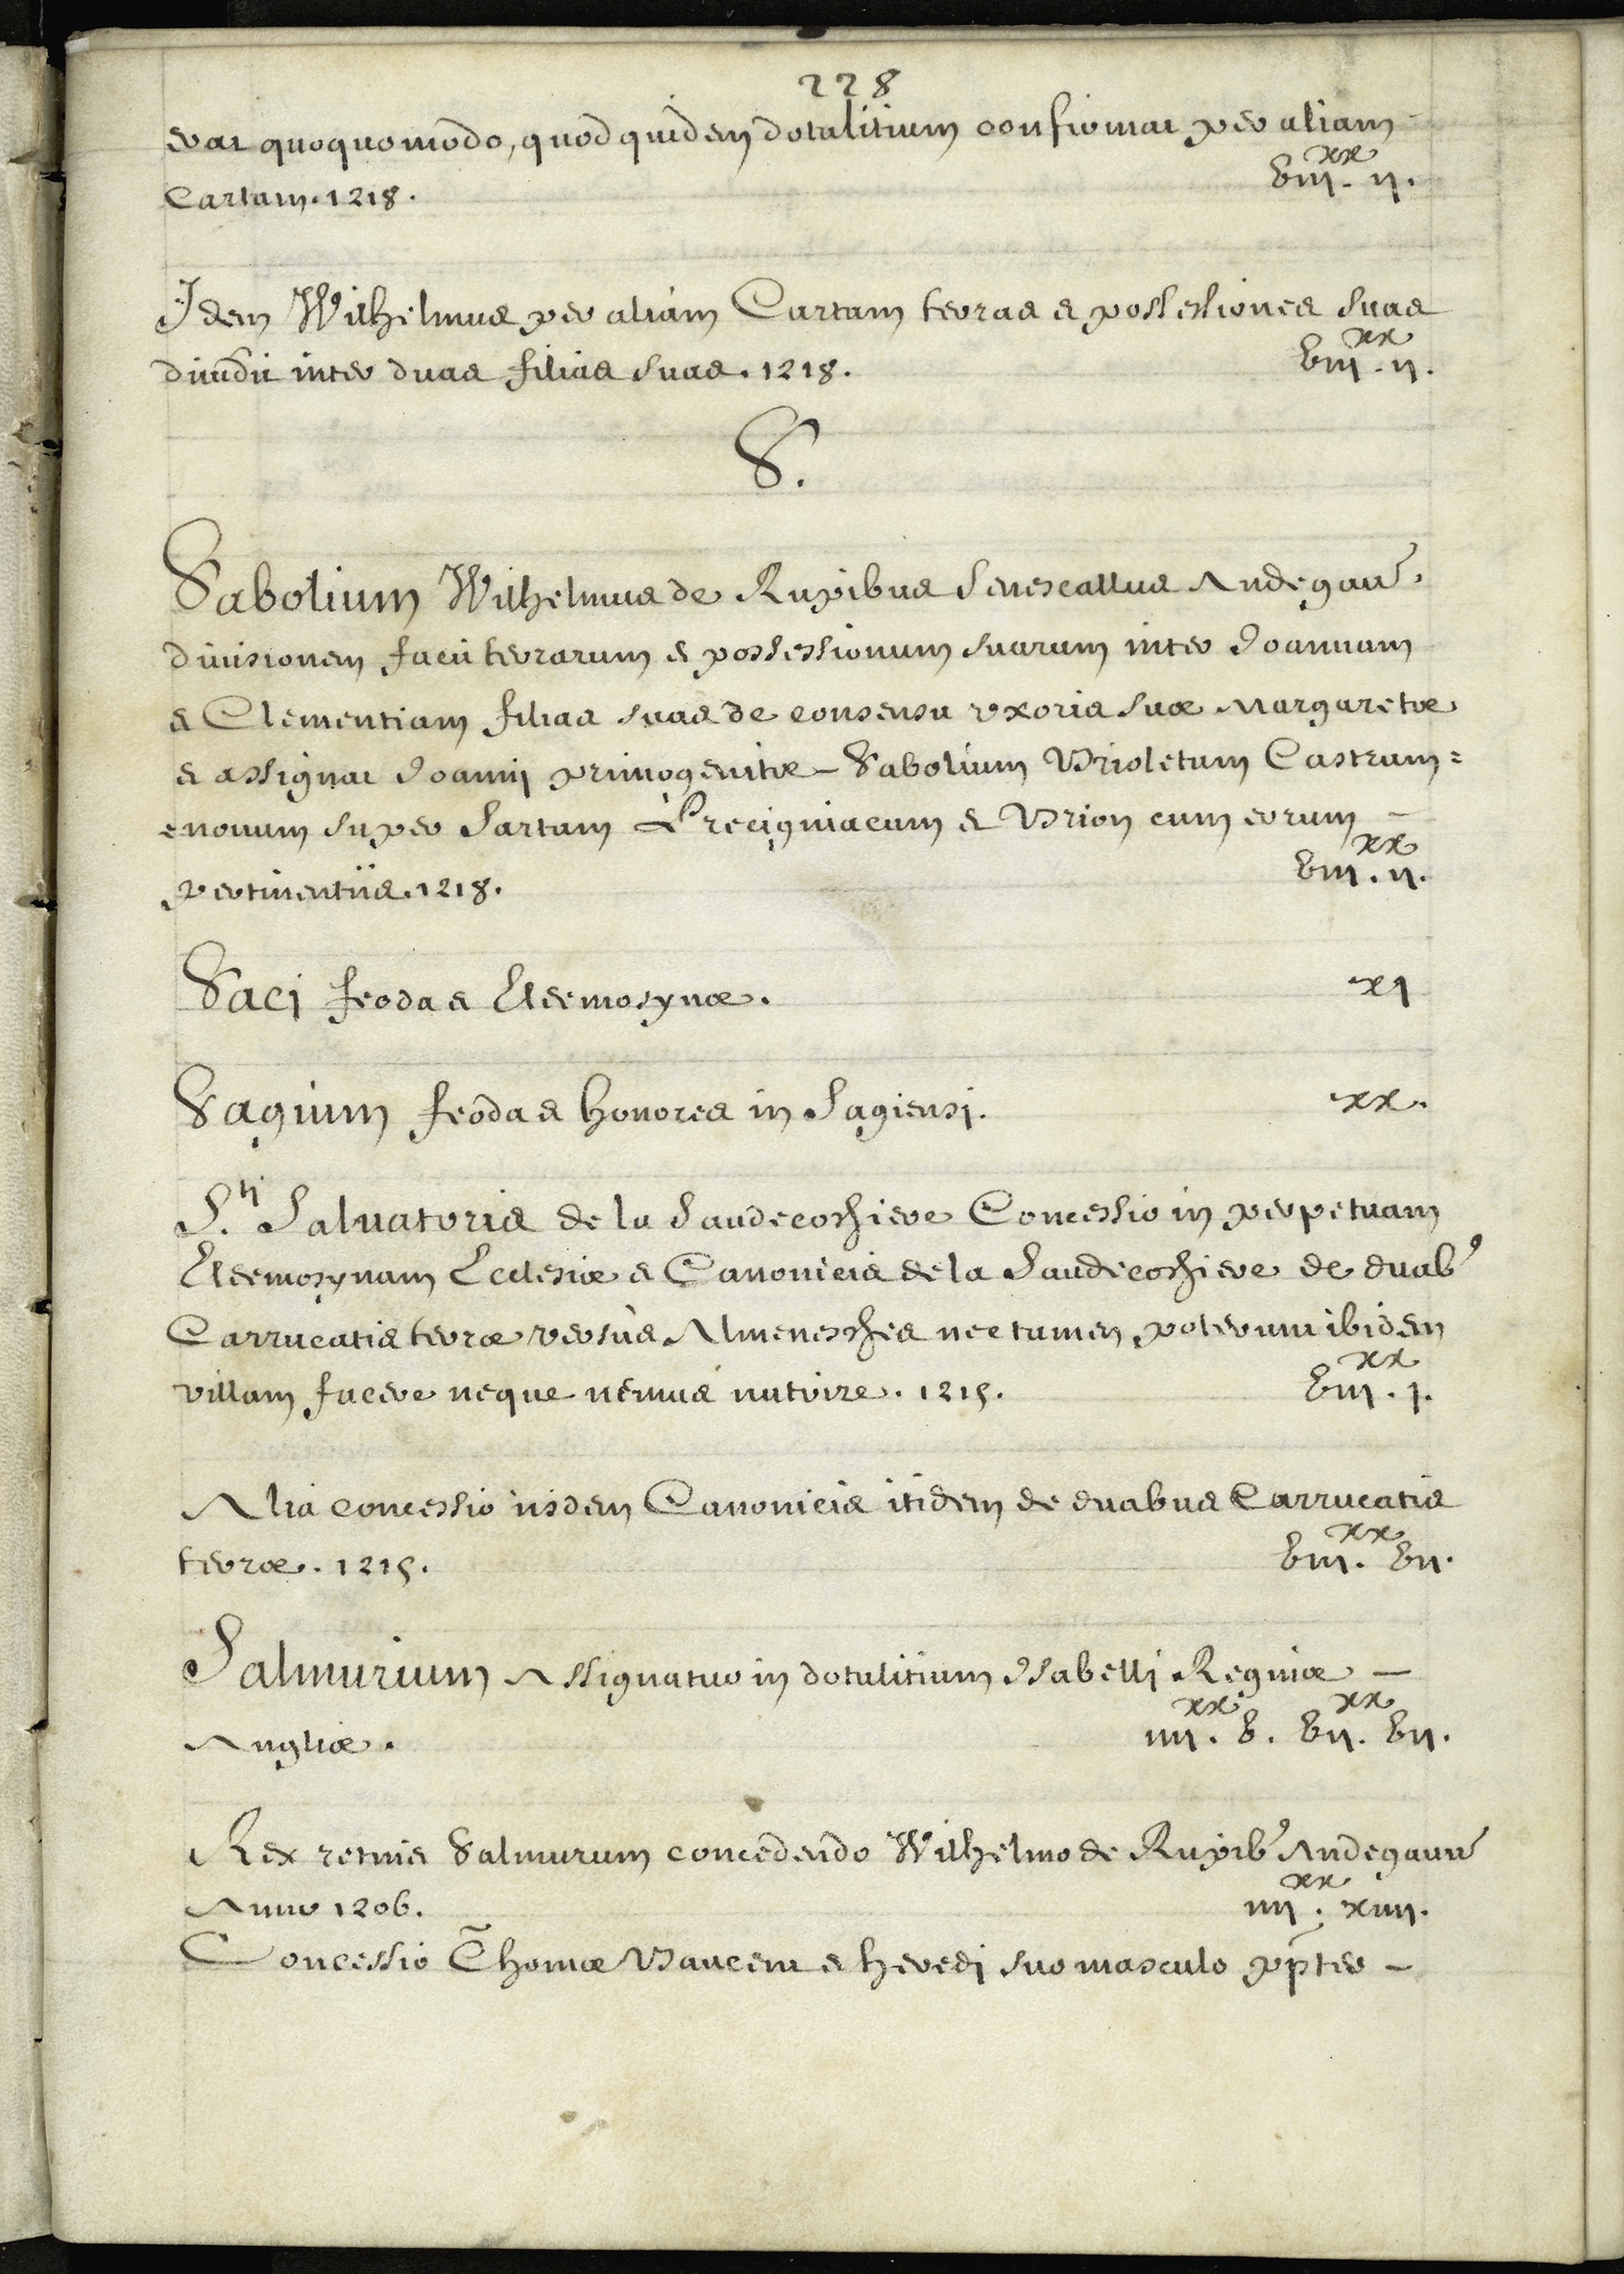 228
erat quoquomodo, quod quidem dotalitium confirmat per aliam
Cartam. 1218. viii^xx. ii.
Idem Wilhelmus per aliam Cartam terras et possessiones suas
dividit inter duas filias suas. 1218. viii^xx. ii.
S.
Sabolium Wilhelmus de Rupibus Senescallus Andegav.
divisionem facit terrarum et possessionum suarum inter Joannam
et Clementiam filias suas de consensu uxoris suæ Margaretæ
et assignat Joannæ primogenitæ - Sabolium Brioletum Castrum=
=novum super Sartam Precigniacum et Brion cum eorum -
pertinentiis. 1218. viii^xx. ii.
Saci feoda et Eleemosynæ. xi
Sagium feoda et honores in Sagiensi. xx.
S.ti Salvatoris de la Landecoshere Concessio in perpetuam
Eleemosynam Ecclesiæ et Canonicis de la Landecoshere de duab9
Carrucatis terræ versùs Almenesches nec tamen poterunt ibidem
villam facere neque nemus nutrire. 1215. viii^xx. i.
Alia concessio iisdem Canonicis itidem de duabus Carrucatis
terræ. 1215. viii^xx. vii.
Salmurium Assignatur in dotalitium Isabelli Reginæ -
Angliæ. iiii^xx. v. vii^xx. vii.
Rex retinet Salmurum concedendo Wilhelmo de Rupib9 Andegaviæ
Anno 1206. iiii^xx. xiiii.
Concessio Thomæ Baucent et heredi suo masculo pp̃ter -